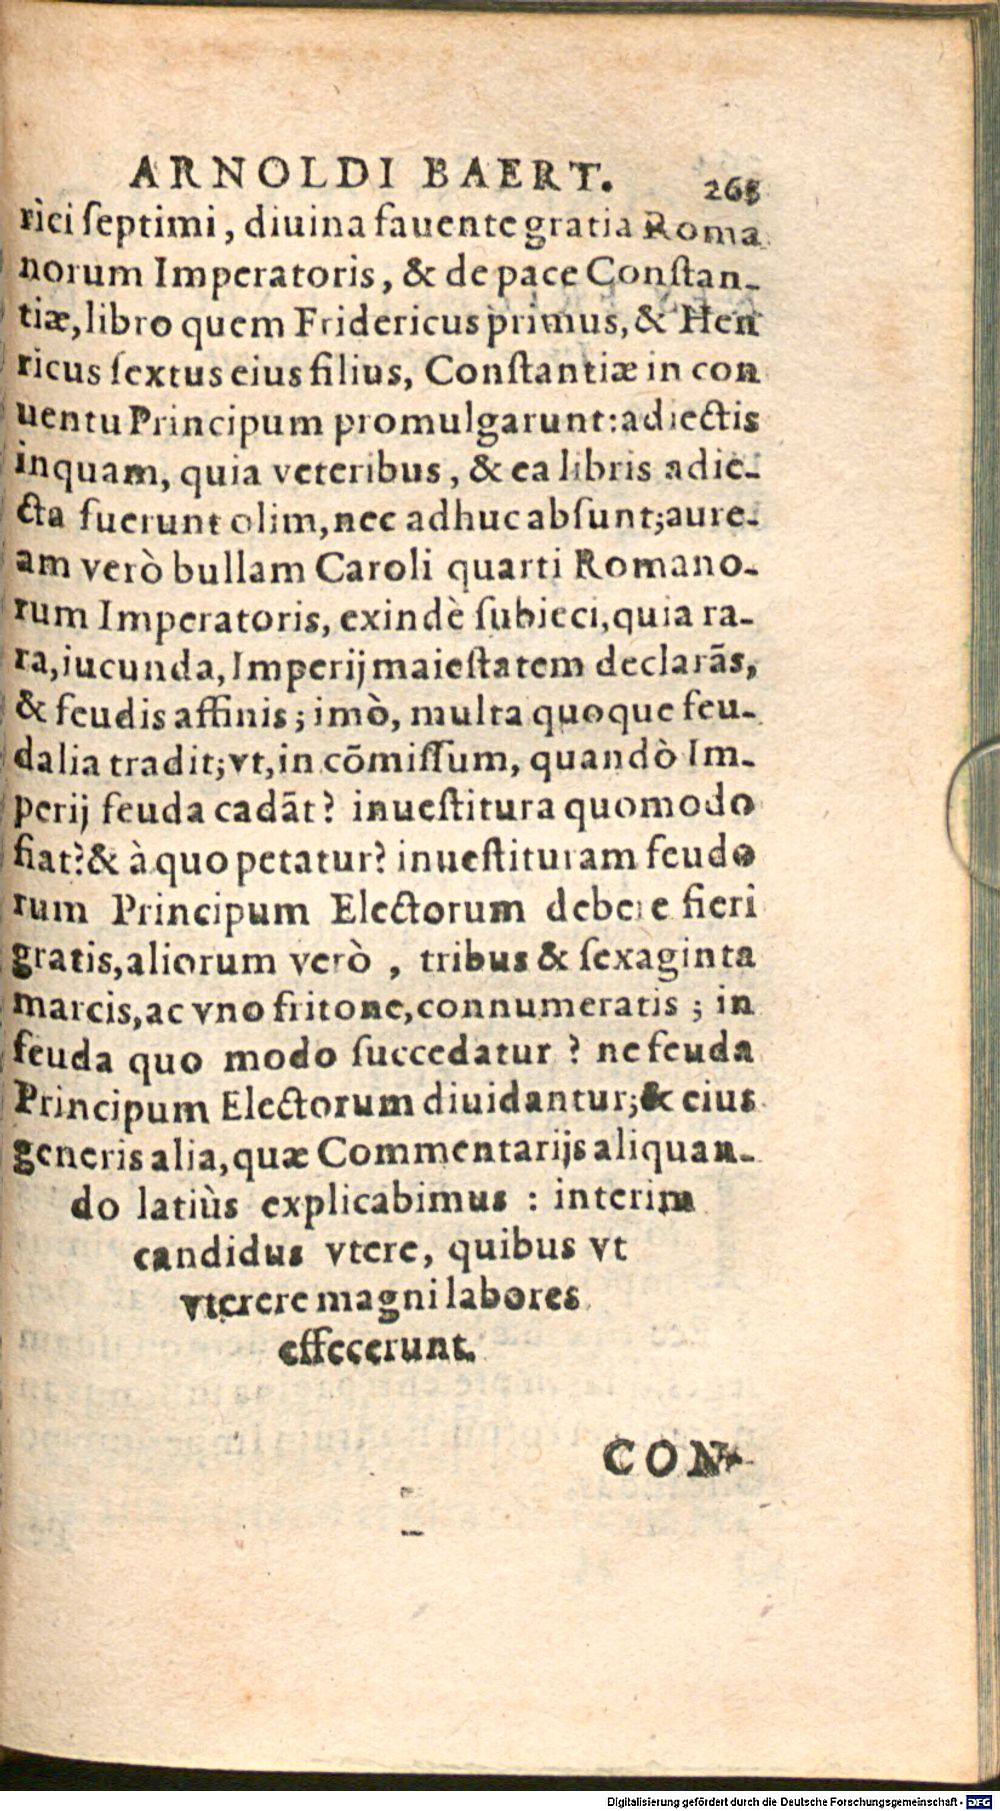 ARNOLDI BAERT. 265
rici ſeptimi, diuina fauente gratia Roma
norum Imperatoris, & de pace Conſtan-
tiæ, libro quem Fridericus primus, & Hen
ricus ſextus eius filius, Conſtantiæ in con
uentu Principum promulgarunt: adiectis
inquam, quia veteribus, & ea libris adie-
cta fuerunt olim, nec adhuc abſunt; aure-
am verò bullam Caroli quarti Romano-
rum Imperatoris, exindè ſubieci, quia ra-
ra, iucunda, Imperij maieſtatem declarãs,
& feudis affinis; imò, multa quoque feu-
dalia tradit; vt, in cõmiſſum, quandò Im-
perij feuda cadãt? inueſtitura quomodo
fiat? & à quo petatur? inueſtituram feudo
rum Principum Electorum debere fieri
gratis, aliorum verò, tribus & ſexaginta
marcis, ac vno fritone, connumeratis; in
feuda quo modo ſuccedatur? ne feuda
Principum Electorum diuidantur; & eius
generis alia, quæ Commentarijs aliquan-
do latiùs explicabimus: interim
candidus vtere, quibus vt
vterere magni labores
effecerunt.
CON-
Digitalisierung gefördert durch die Deutsche Forschungsgemeinschaft - DFG